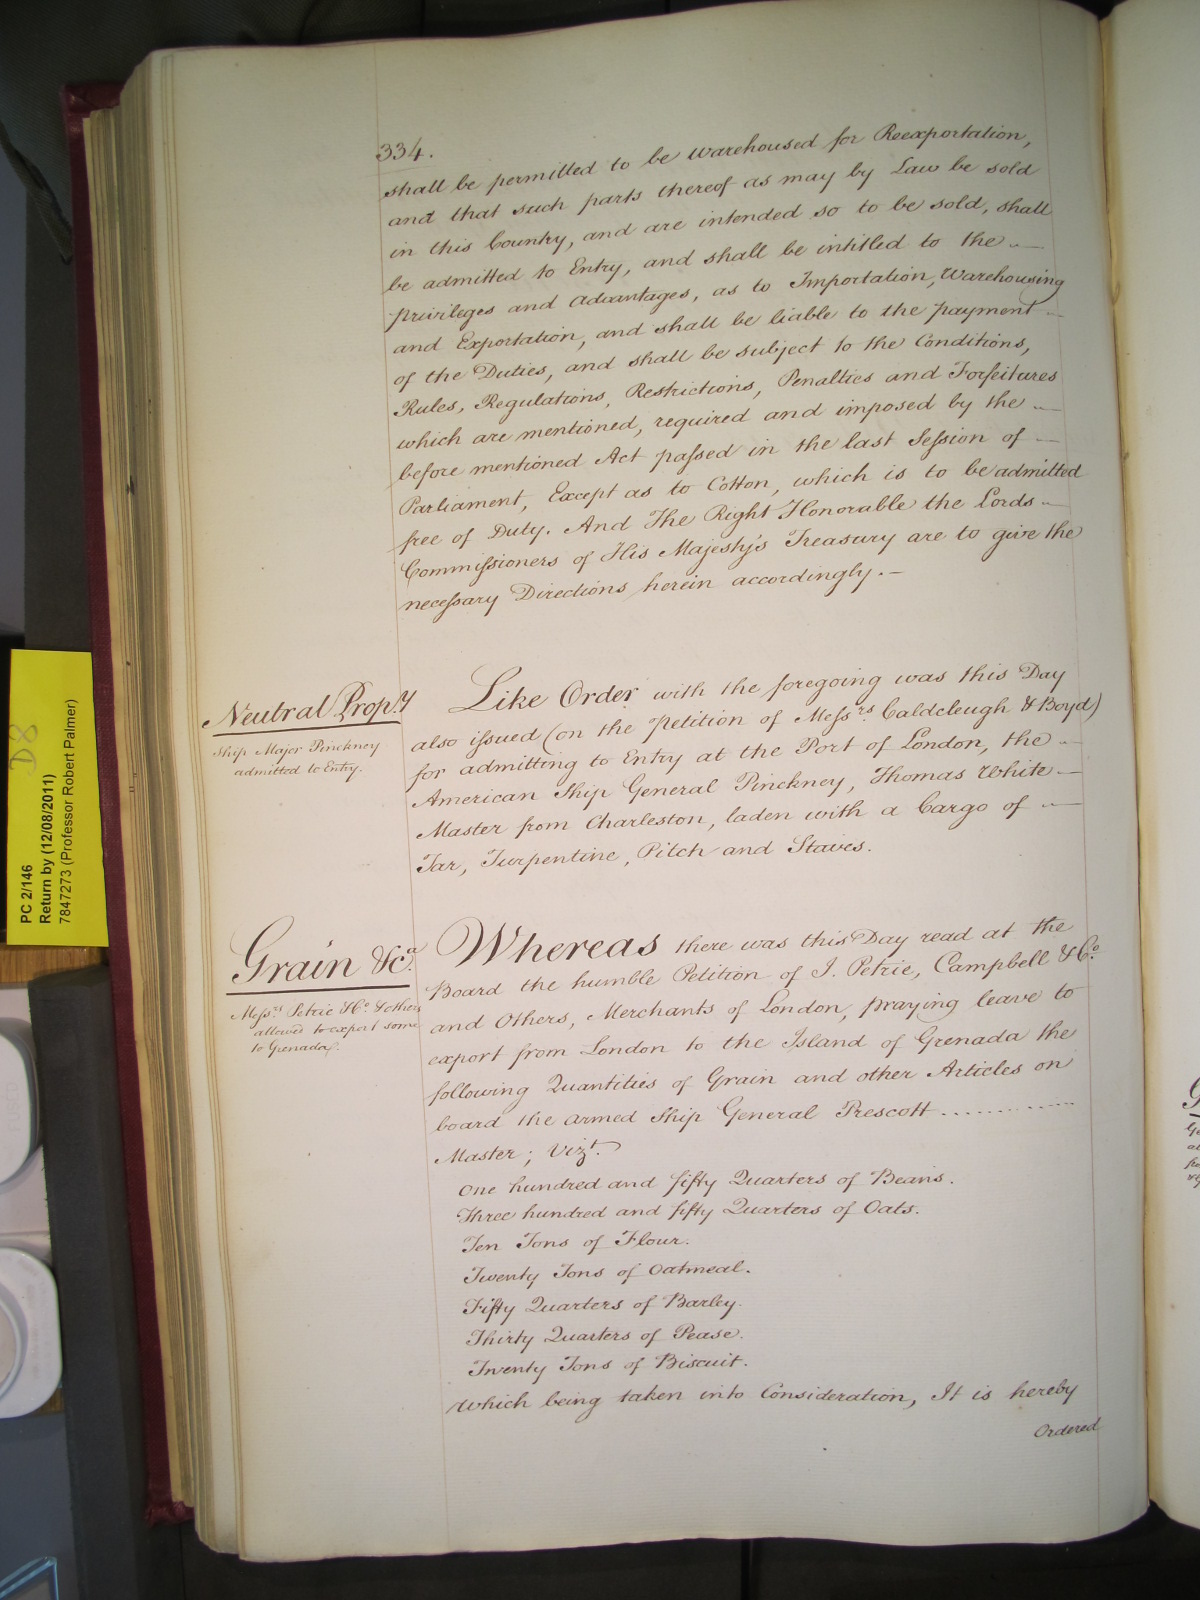 334.
shall be permitted to be warehoused for Reexportation,
and that such parts thereof as may by Law be sold
in this Country, and are intended so to be sold, shall
be admitted to Entry, and shall be intitled to the
privileges and Advantages, as to Importation, Warehousing
and Exportation, and shall be liable to the payment
of the Duties, and shall be subject to the Conditions,
Rules, Regulations, Restrictions, Penalties and Forfeitures
which are mentioned, required and imposed by the
before mentioned Act passed in the last Session of
Parliament, Except as to Cotton, which is to be admitted
free of Duty. And The Right Honorable the Lords
Commissioners of His Majesty's Treasury are to give the
necessary Directions herein accordingly.
Neutral Propy
Ship Major Pinckney
admitted to Entry.
Like Order with the foregoing was this Day
also issued (on the Petition of Messrs. Caldcleugh & Boyd)
for admitting to Entry at the Port of London, the
American Ship General Pinckney, Thomas White
Master from Charleston, laden with a Cargo of
Tar, Turpentine, Pitch and Staves.
Grain &ca.
Messrs Petrie & Co. & others
allowed to export some
to Grenada.
Whereas there was this Day read at the
Board the humble Petition of J. Petrie, Campbell & Co.
and Others, Merchants of London, praying leave to
export from London to the Island of Grenada the
following Quantities of Grain and other Articles on
board the armed Ship General Prescott ..............
Master; Vizt.
One hundred and fifty Quarters of Beans.
Three hundred and fifty Quarters of Oats.
Ten Tons of Flour.
Twenty Tons of Oatmeal.
Fifty Quarters of Barley.
Thirty Quarters of Pease.
Twenty Tons of Biscuit.
Which being taken into Consideration, It is hereby
Ordered
D8
PC 2/146
Return by (12/08/2011)
7847273 (Professor Robert Palmer)